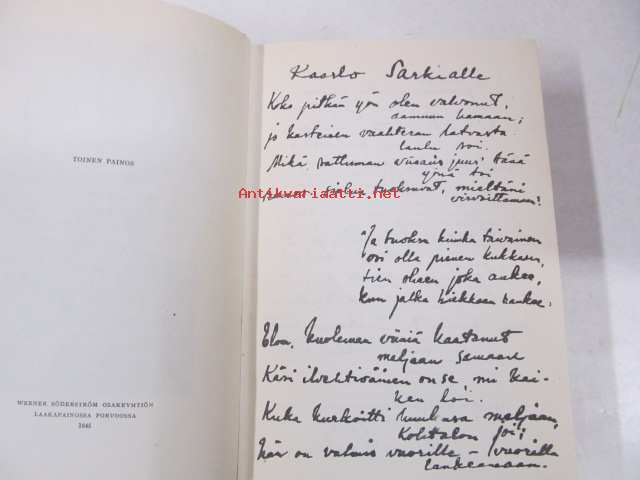 TOINEN PAINOS
WERNER SÖDERSTRÖM OSAKEYHTIÖN
LAAKAPAINOSSA PORVOOSSA
1946
Kaarlo Sarkialle
Koko pitkän yön olen valvonut,
aamuun hamaan;
jo kasteisen vaahteran latvasta
laulu soi.
Mikä sattuman viisaus juuri tässä
yössä toi
sielun tuoksuvat, mieltäni
virvoittamaan!
"Ja tuoksu kuinka taivainen
voi olla pienen kukkasen,
tien oheen joka aukee,
kun jalka hiekkaan raukee."
Elon, kuoleman viiniä kaatanut
maljaan samaan
Käsi ilvehtiväinen on se, mi kai-
ken loi.
Kuka kurkoitti huultansa maljaan,
kohtalon joi;
hän on valmis vuorille – vuorilta
lankeamaan.
Antikvariaatti.net